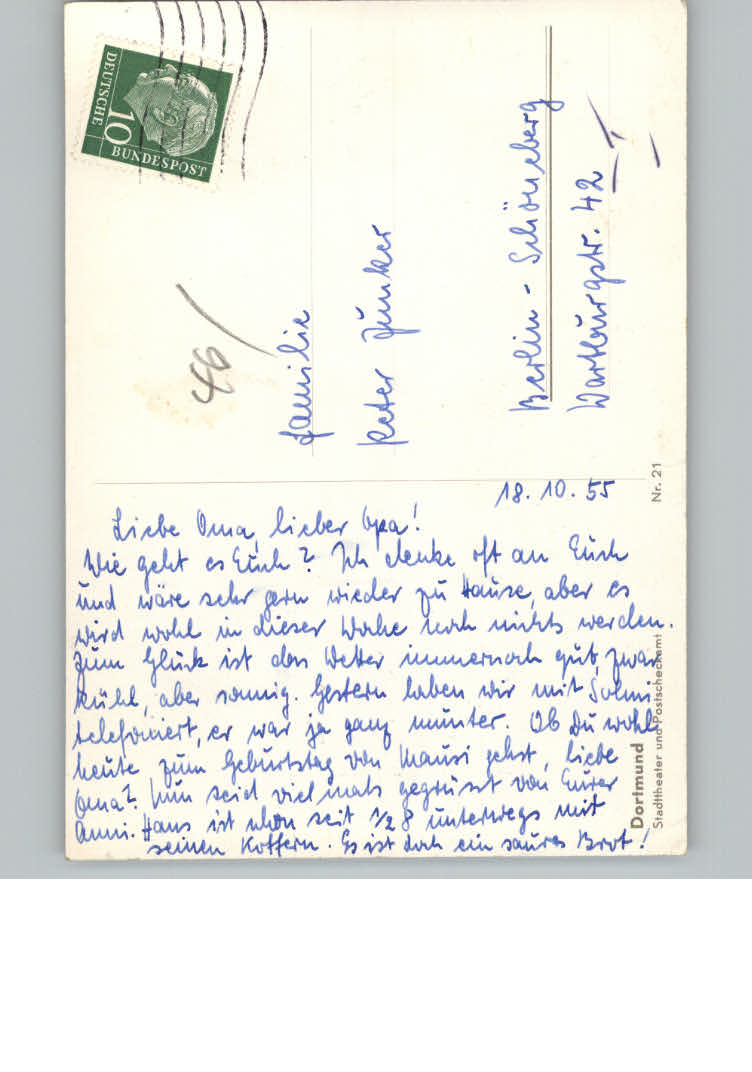 18.10.55
Liebe Oma, lieber Opa!
Wie geht es Euch? Ich denke oft an Euch
und wäre sehr gern wieder zu Hause, aber es
wird wohl in dieser Woche noch nichts werden.
Zum Glück ist das Wetter immernoch gut, zwar
kühl, aber sonnig. Gestern haben wir mit
telefoniert, er war ja ganz munter. Ob Du wohl
heute zum Geburtstag von Mausi gehst, liebe
Oma? Nun seid vielmals gegrüsst von Eurer
Anni. Hans ist schon seit 1/2 8 unterwegs mit
seinen Koffern. Es ist doch ein saures Brot!
Familie
Peter Junker
Berlin - Schöneberg
Wartburgstr. 42
46
DEUTSCHE
10
BUNDESPOST
Nr. 21
Dortmund
Stadttheater und Postscheckamt